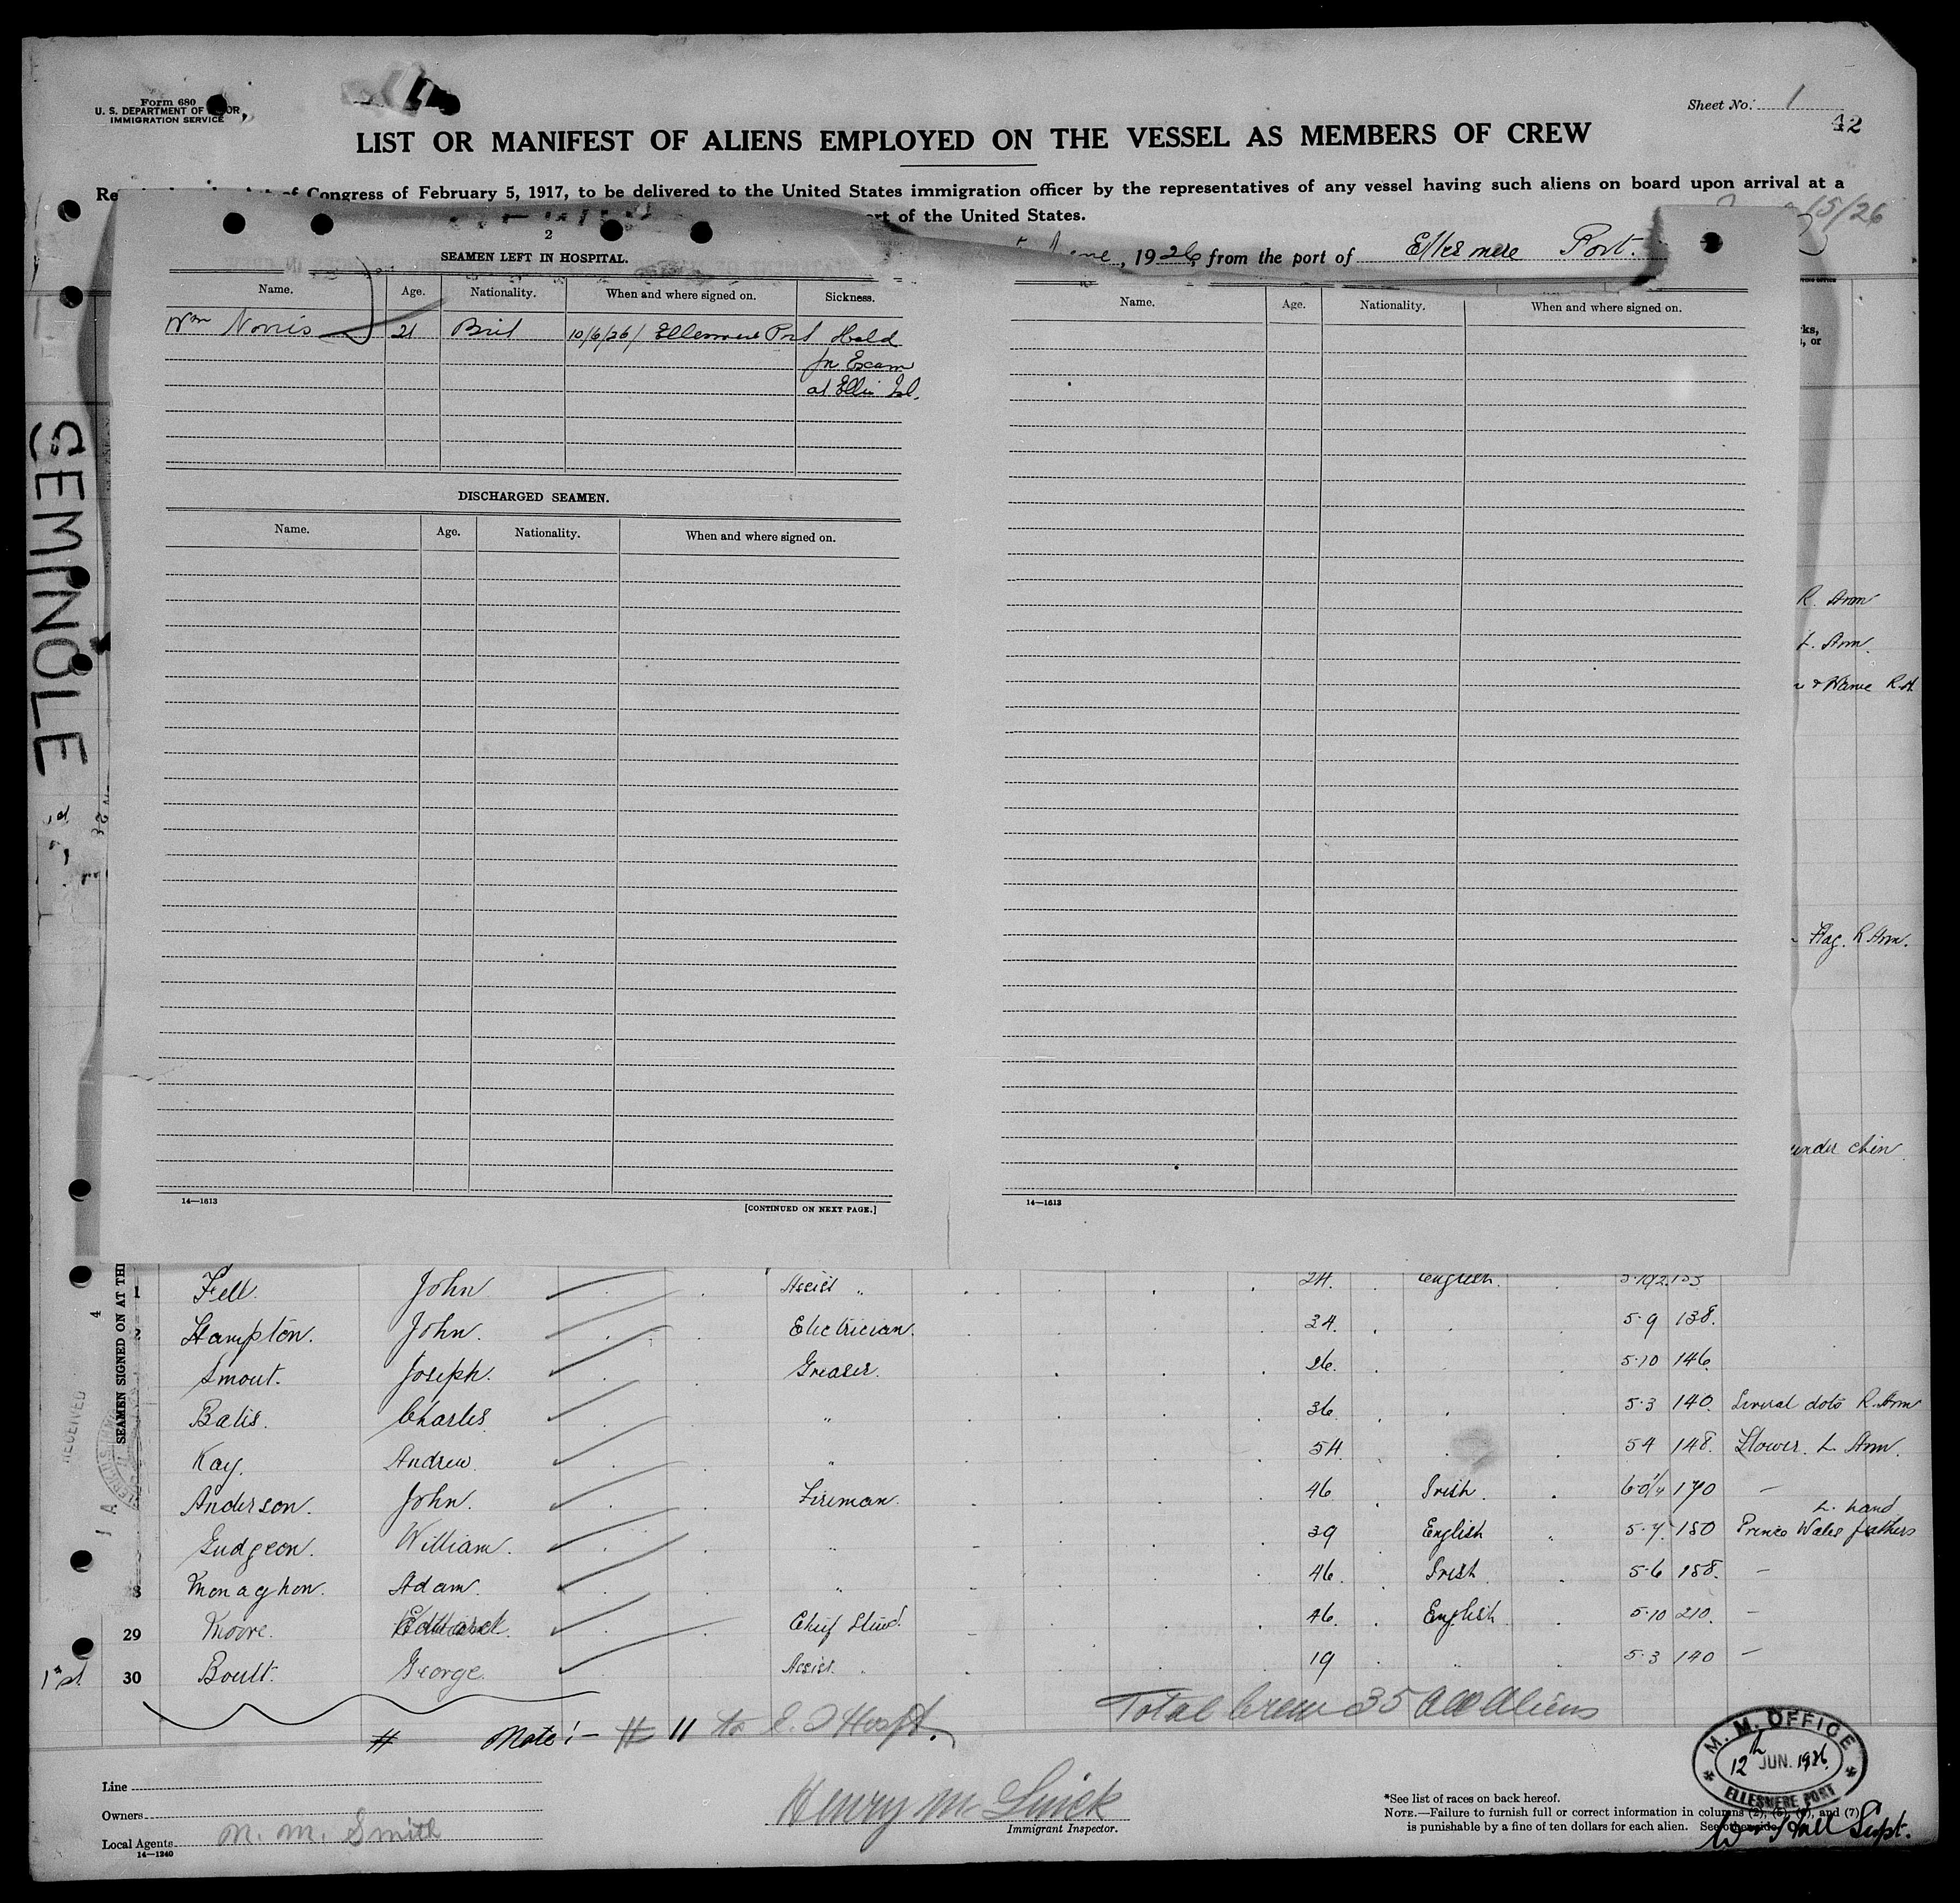 Form 680
U. S. DEPARTMENT OF
IMMIGRATION SERVICE
Sheet No. 1
42
LIST OR MANIFEST OF ALIENS EMPLOYED ON THE VESSEL AS MEMBERS OF CREW
of Congress of February 5, 1917, to be delivered to the United States immigration officer by the representatives of any vessel having such aliens on board upon arrival at a
of the United States.
15/26
, 1926, from the port of Ellesmere Port.
2
SEAMEN LEFT IN HOSPITAL.
Name. Age. Nationality. When and where signed on. Sickness.
Wm Norris 21 Brit 10/6/26 / Ellesmere Port Held
for Exam
at Ellis Isl.
DISCHARGED SEAMEN.
Name. Age. Nationality. When and where signed on.
14—1613
[CONTINUED ON NEXT PAGE.]
Name. Age. Nationality. When and where signed on.
14—1613
SEMINOLE
R. Arm
L. Arm.
Flag. R Arm.
under chin
SEAMEN SIGNED ON AT
RECEIVED
4
1 Fell. John Assist " 24. English.
2 Hampton. John. Electrician. 34. 5-9 138.
Smout. Joseph. Greaser. 26. 5-10 146.
Batis. Charles " 36 5-3 140. Several dots R. Arm
Kay. Andrew. " 54. 5 4 148. Flower. L Arm.
Anderson. John. Fireman. 46 Irish. 6-0¼ 170 —
Gudgeon. William. " 39 English " 5-7 150 Prince Wales feathers L. hand
8 Monaghan. Adam. " 46. Irish. 5-6 158. —
29 Moore. Edward. Chief Stwd. 46. English. 5-10 210. —
1st 30 Boult. George. Assist. " 19 " 5-3 140 —
# Note! - # 11 to E. I Hospt.
Total Crew 35 All Aliens
Line
Owners
Local Agents M. M. Smith
14—1240
Henry Mc
Immigrant Inspector.
*See list of races on back hereof.
NOTE.—Failure to furnish full or correct information in columns (2), (5), (6), and (7)
is punishable by a fine of ten dollars for each alien. See other side.
M. M. OFFICE
12th JUN. 1926.
ELLESMERE PORT
Wm Hall Supt.